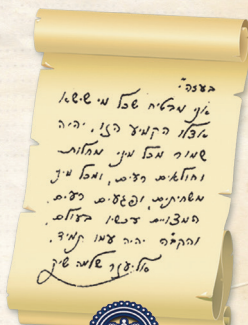 בעזהי"
אני מבטיח שכל מי שישא
אצלו הקמיע הזו, יהיה
שמור מכל מיני מחלות
וחולאים רעים, ומכל מיני
משחיתים, ופגעים רעים
המצויים עכשיו בעולם,
והקב"ה יהיה עמו תמיד.
אליעזר שלמה שיק